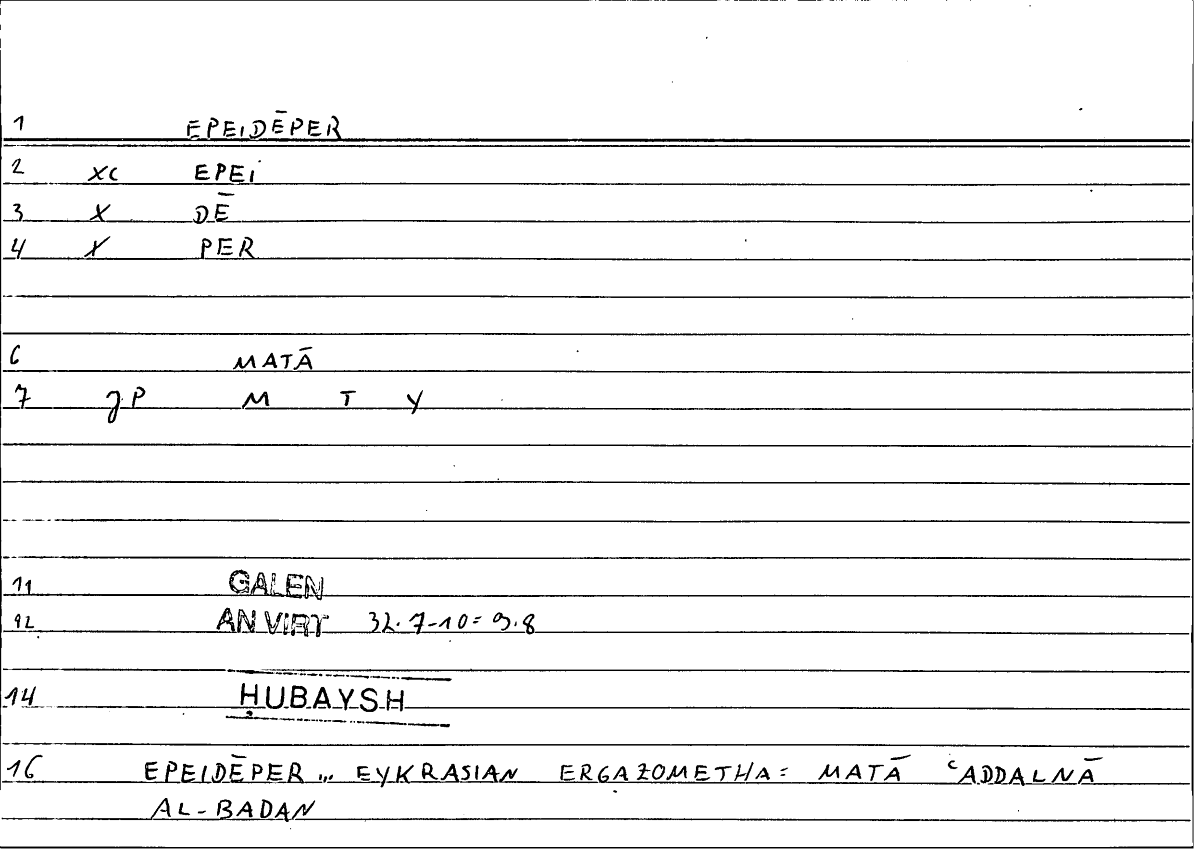 1 EPEIDĒPER
2 XC EPEI
3 X DĒ
4 X PER
6 MATĀ
7 JP M T Y
11 GALEN
12 AN VIRT 32.7-10=9.8
14 ḤUBAYSH
16 EPEIDĒPER ... EYKRASIAN ERGAZOMETHA= MATĀ ʿADDALNĀ
AL-BADAN